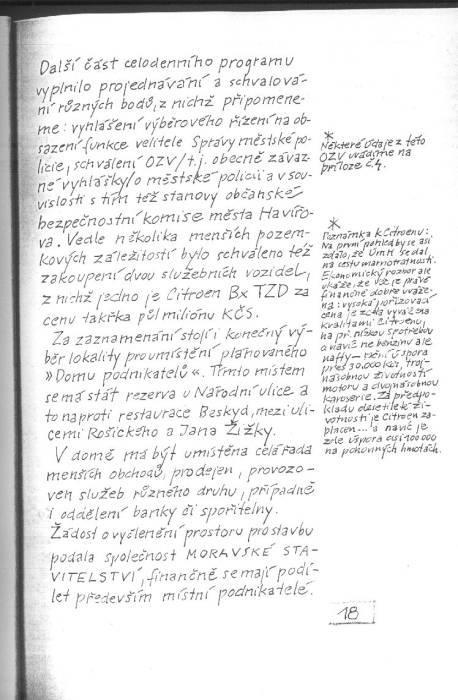 Další část celodenního programu
vyplnilo projednávání a schvalová-
ní různých bodů, z nichž připomene-
me: vyhlášení výběrového řízení na ob-
sazení funkce velitele Správy městské po-
licie, schválení OZV /t.j. obecně závaz-
né vyhlášky/o městské policii a v sou-
vislosti s tím též stanovy občanské
bezpečnostní komise města Havířo-
va. Vedle několika menších pozem-
kových záležitostí bylo schváleno též
zakoupení dvou služebních vozidel,
z nichž jedno je Citroen Bx TZD za
cenu takřka půl miliónu KČS.
Za zaznamenání stojí i konečný vý-
běr lokality pro umístění plánovaného
»Domu podnikatelů«. Tímto místem
se má stát rezerva u Národní ulice a
to naproti restaurace Beskyd, mezi uli-
cemi Rošického a Jana Žižky.
V domě má být umístěna celá řada
menších obchodů, prodejen, provozo-
ven služeb různého druhu, případně
i oddělení banky či spořitelny.
Žádost o vyčlenění prostoru pro stavbu
podala společnost MORAVSKÉ STA-
VITELSTVÍ, finančně se mají podí-
let především místní podnikatelé.
*
Některé údaje z této
OZV uvádíme na
příloze č.4.
*
Poznámka k Citroenu:
Na první pohled by se asi
zdálo, že úřad se dal
na cestu marnotratnosti.
Ekonomický rozbor ale
ukáže, že vše je právě
finančně dobře uváže-
no: vysoká pořizovací
cena je zcela vyvážena
kvalitami Citroenu,
na př. nízkou spotřebou
a navíc ne benzínu ale
nafty – roční úspora
přes 30.000 Kčs, troj-
násobnou životností
motoru a dvojnásobnou
karoserie. Za předpo-
kladu desetileté ži-
votnosti je Citroen za-
placen... a navíc je
zde úspora cca 100 000
na pohonných hmotách.
18